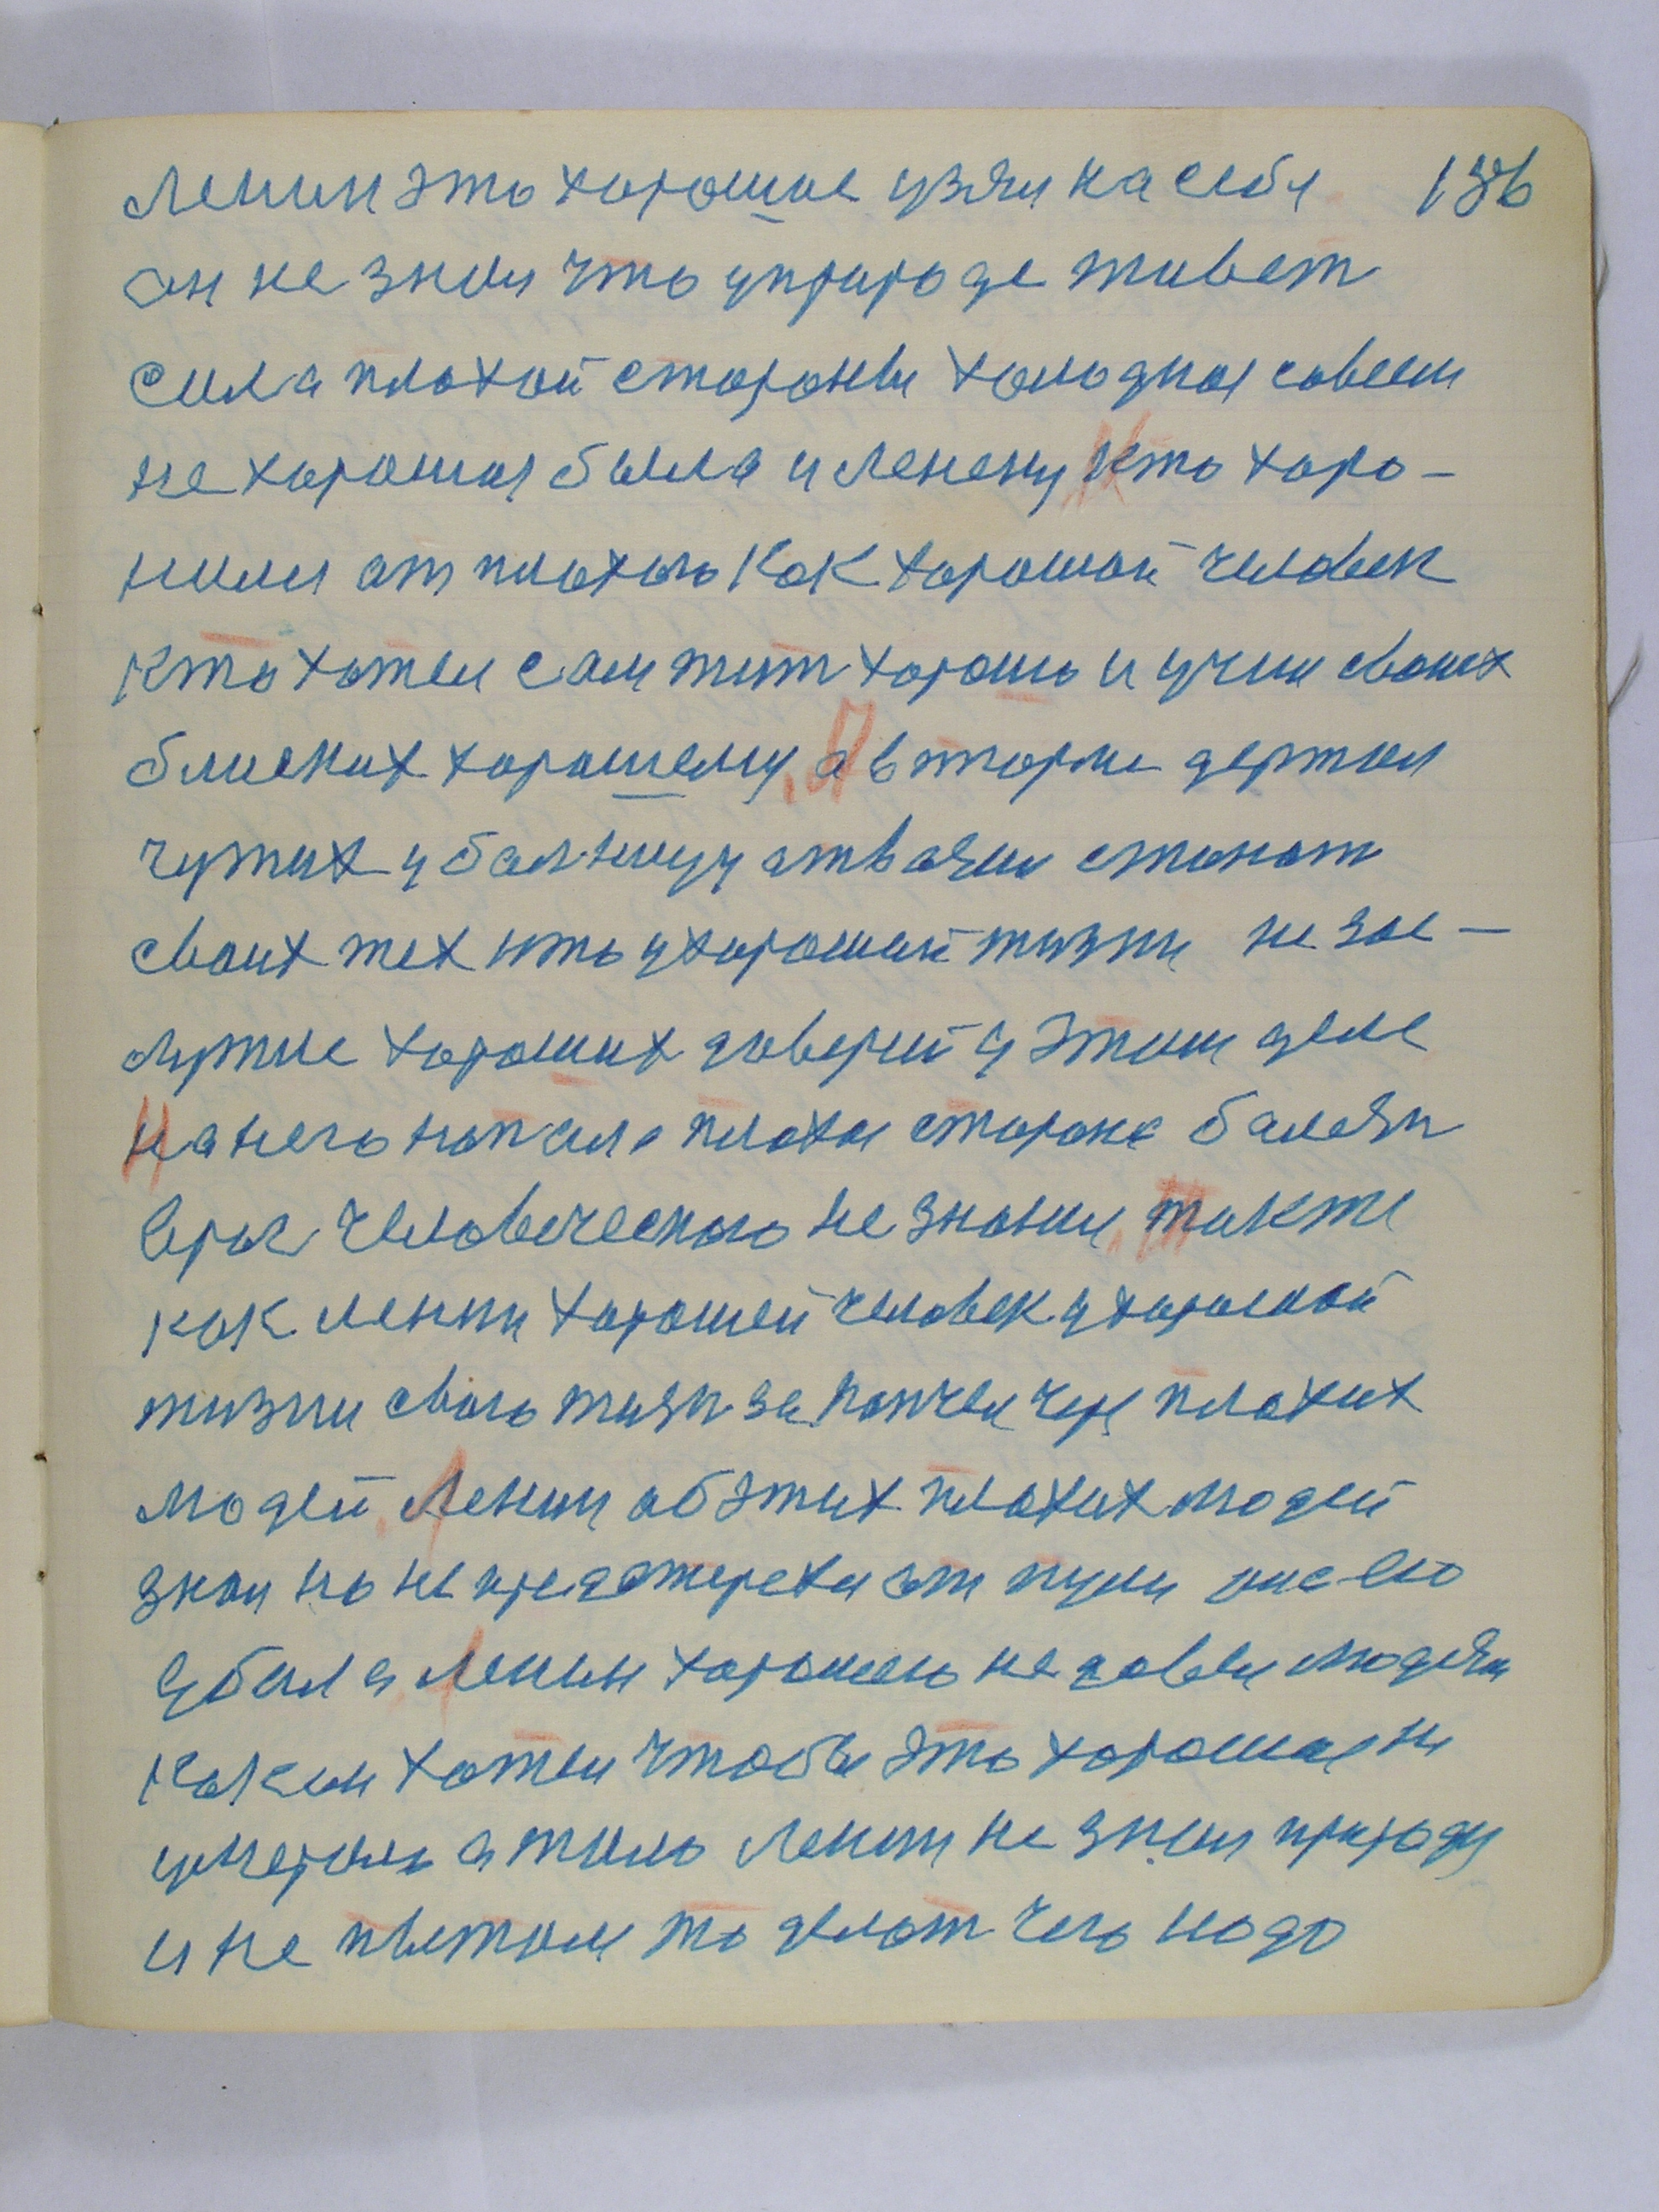 Ленин это хорошие узял на себя 136
он не знал что у природе живет
сила плохой стороны холодная совсем
не хорошая была и Ленену Кто харо-
нился от плохого Как хорошой человек
Кто хотел сам жит хорошо и учил своих
блиских хорошему, А в тюрме держал
чужих у балницу атвозил стонат
своих тех кто у хорошай жизни не зас-
лужие хороших доверий у этим деле
На него напала плохая сторона балезн
враг человеческого не знания, так же
как Ленин хорошей человек у хорошой
жизни свою жизн закончел чере плохих
людей. Ленин об этих плохих людей
знал но не предстерехся от пули он ею
убил а Ленин хорошего не довел людям
как он хотел чтобы это хорошае ни
умерало а жило Ленин не знал природу
и не питался то делат чего надо